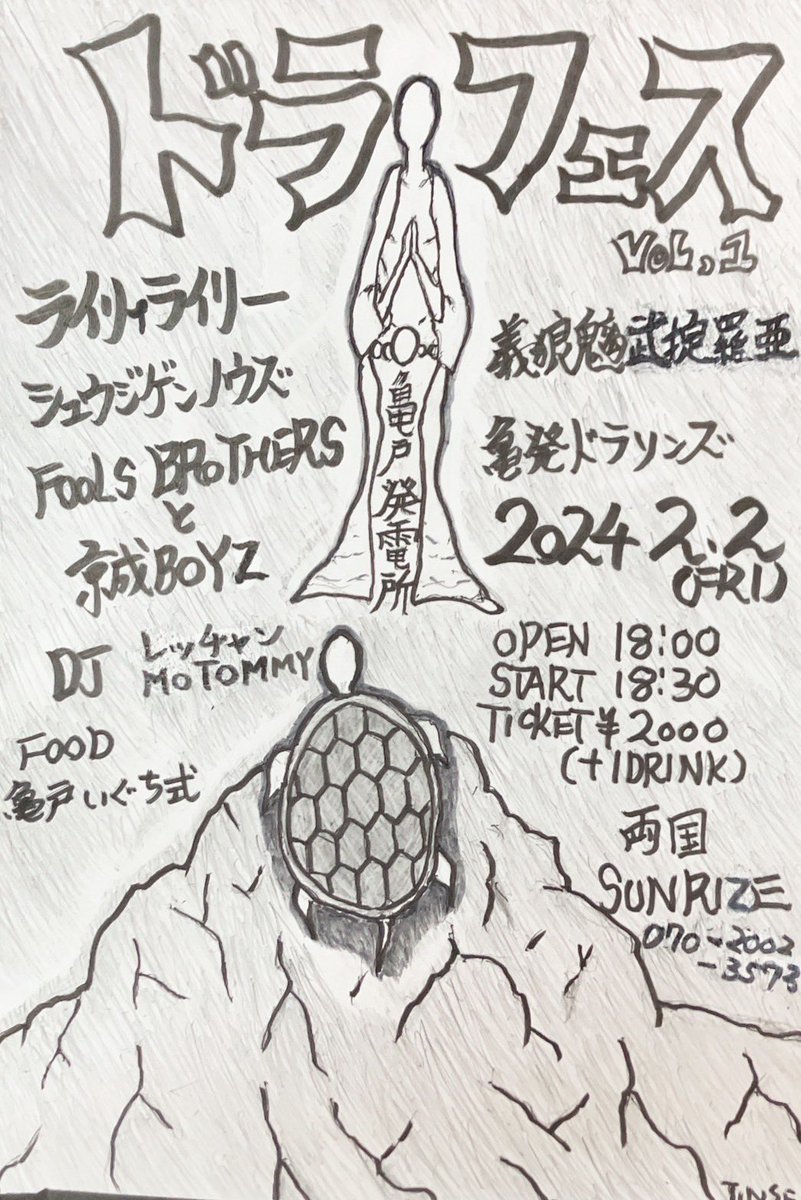 ドラフェス
VOL.1
ライリィライリー
シュウジゲンノウズ
FOOLS BROTHERS
と
京成BOYZ
義狼魑武掟羅亜
亀発ドラソンズ
亀戸発電所
2024 2.2
(FRI)
DJ レッチャン
MOTOMMY
FOOD
亀戸いぐち式
OPEN 18:00
START 18:30
TICKET ¥2000
(+1DRINK)
両国
SUNRIZE
070-2002
-3573